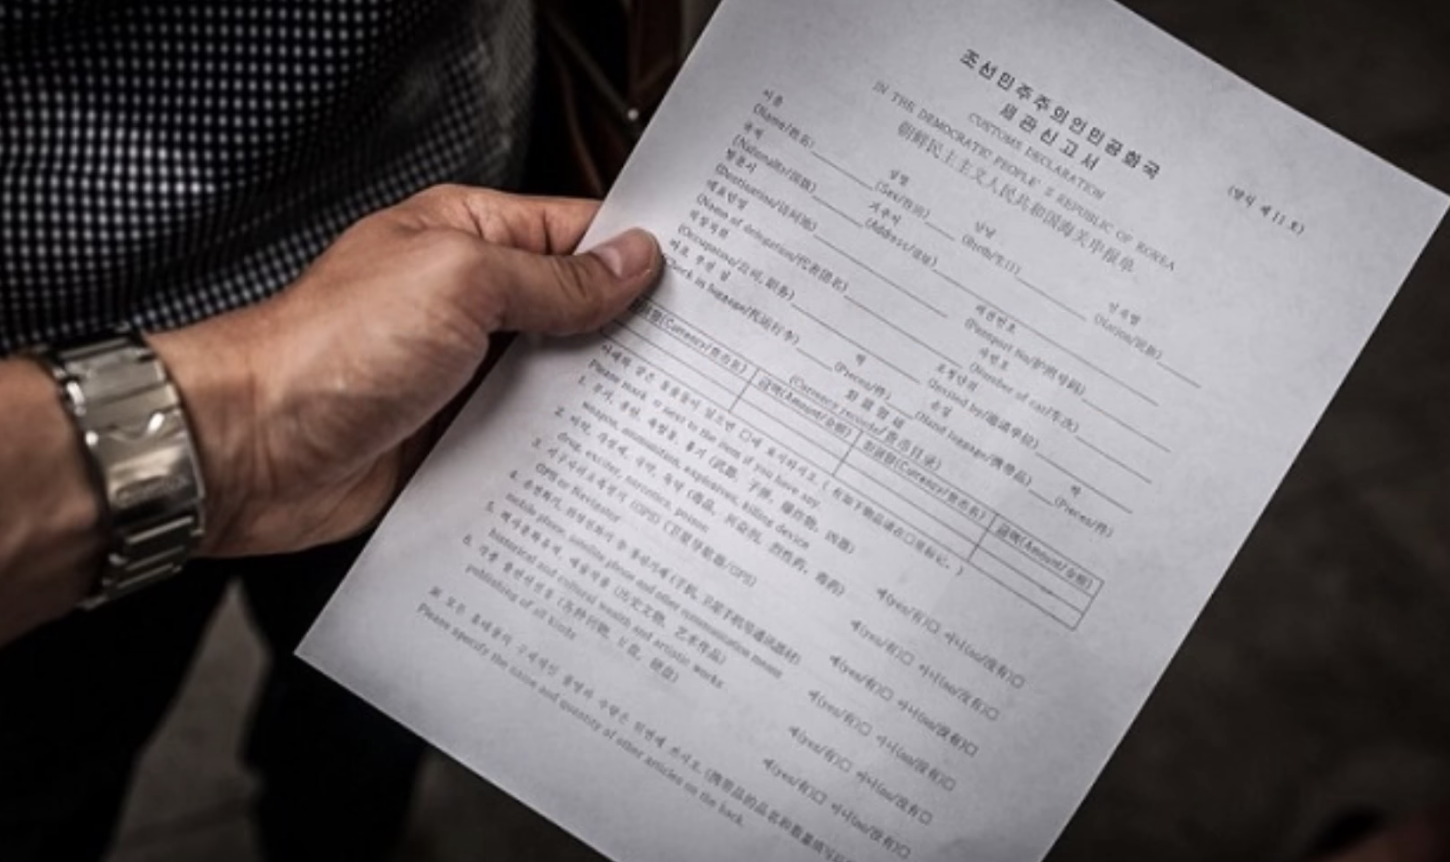 조선민주주의인민공화국
세관신고서
(양식 제 11 호)
CUSTOMS DECLARATION
IN THE DEMOCRATIC PEOPLE'S REPUBLIC OF KOREA
朝鲜民主主义人民共和国海关申报单
이름 성별 난날 민족별
(Name/姓名) (Sex/性别) (Birth/生日) (Nation/民族)
국적 거주지 려권번호
(Nationality/国籍) (Address/住址) (Passport No/护照号码)
방문지 차번호
(Destination/访问地) (Number of car/车次)
대표단명 초청단위
(Name of delegation/代表团名) (Invited by/邀请单位)
직장직위
(Occupation/公司,职务)
따로 부친 짐 짝 손짐 짝
luggage/托运行李) (Pieces/件) (Hand luggage/携带品) (Pieces/件)
화폐명세
(Currency records/货币目录)
(Currency/货币名) 금액(Amount/金额) 화폐명(Currency/货币名) 금액(Amount/金额)
아래와 같은 물품들이 있으면 □에 표시하시오. (有如下物品请在□里标记。)
Please mark X next to the item if you have any.
1. 무기, 총탄, 폭발물, 흉기 (武器, 子弹, 爆炸物, 凶器) 예(yes/有)□ 아니(no/没有)□
weapon, ammunition, explosives, killing device
2. 마약, 각성제, 극약, 독약 (毒品, 兴奋剂, 烈性药, 毒药) 예(yes/有)□ 아니(no/没有)□
drug, exciter, narcotics, poison
3. (GPS) (卫星导航器/GPS) 예(yes/有)□ 아니(no/没有)□
GPS or Navigator
4. 손전화기, 위성전화 등 통신기재 (手机, 卫星手机等通讯器材) 예(yes/有)□ 아니(no/没有)□
mobile phone, satellite phone and other communication means
5. 력사문화유적, 예술작품 (历史文物, 艺术作品) 예(yes/有)□ 아니(no/没有)□
historical and cultural wealth and artistic works
6. 각종 출판선전물 (各种刊物, 예(yes/有)□ 아니(no/没有)□
publishing of all kinds
※ 모든 휴대품의 구체적인 품명과 수량은 뒤면에 쓰시오. (携带品的品名和数量
Please specify the name and quantity of other articles on the back.